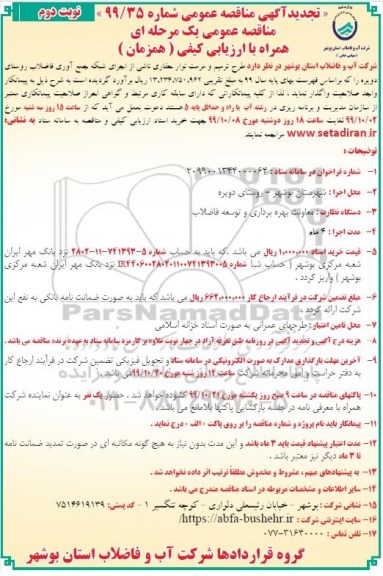 « تجدیدآگهی مناقصه عمومی شماره ۹۹/۳۵ »
نوبت دوم
مناقصه عمومی یک مرحله ای
همراه با ارزیابی کیفی ( همزمان )
شرکت آب و فاضلاب استان بوشهر
شرکت آب و فاضلاب استان بوشهر در نظر دارد طرح ترمیم و مرمت نوار حفاری ناشی از اجرای شبکه جمع آوری فاضلاب روستای
دویره را که براساس فهرست بهای پایه سال ۹۹ به مبلغ تقریبی ۱۳,۲۳۴,۷۵۰,۹۴۲ ریال برآورد گردیده است به شرح ذیل به پیمانکار
واجد صلاحیت واگذار نماید . لذا از کلیه پیمانکارانی که دارای سابقه کاری مرتبط و گواهی احراز صلاحیت پیمانکاری معتبر
از سازمان مدیریت و برنامه ریزی در رشته آب با رتبه حداقل پایه 5 هستند دعوت بعمل می آید که از ساعت ۱۵ روز سه شنبه مورخ
۹۹/۱۰/۰۲ لغایت ساعت ۱۸ روز دوشنبه مورخ ۹۹/۱۰/۰۸ جهت خرید اسناد ارزیابی کیفی و مناقصه به سامانه ستاد به نشانی:
www.setadiran.ir مراجعه نمایند.
توضیحات :
۱- شماره فراخوان در سامانه ستاد : ۲۰۹۹۰۰۱۳۴۴۰۰۰۰۶۴
۲- محل اجرا : شهرستان بوشهر - روستای دویره
۳- دستگاه نظارت : معاونت بهره برداری و توسعه فاضلاب
۴- مدت اجرا : ۴ ماه
۵- قیمت خرید اسناد ۱,۰۰۰,۰۰۰ ریال می باشد .که باید به حساب شماره ۵-۷۴۱۳۹۳-۱۱-۲۸۰۲ نزد بانک مهر ایران
شعبه مرکزی بوشهر ( حساب شبا شماره IR۴۴۰۶۰۰۲۸۰۲۰۱۱۰۰۷۴۱۳۹۳۰۰۵ نزد بانک مهر ایران شعبه مرکزی
بوشهر ) واریز گردد .
۶- مبلغ تضمین شرکت در فرآیند ارجاع کار ۶۶۲,۰۰۰,۰۰۰ ریال می باشد که باید به صورت ضمانت نامه بانکی به نفع این
شرکت ارائه گردد .
۷- محل تامین اعتبار : طرحهای عمرانی به صورت اسناد خزانه اسلامی
۸- هزینه درج آگهی و تجدید آگهی در روزنامه طبق تعرفه آزاد در چهار نوبت علاوه بر کارمزد سامانه ستاد به عهده برنده مناقصه می باشد .
۹- آخرین مهلت بارگذاری مدارک به صورت الکترونیکی در سامانه ستاد و تحویل فیزیکی تضمین شرکت در فرآیند ارجاع کار
به دفتر حراست و امور محرمانه شرکت ساعت ۱۴ روز شنبه مورخ ۹۹/۱۰/۲۰ می باشد.
۱۰- پاکتهای مناقصه در ساعت ۹ صبح روز یکشنبه مورخ ۹۹/۱۰/۲۱ گشوده خواهد شد . حضور یک نفر به عنوان نماینده شرکت
همراه با معرفی نامه در جلسه بازگشایی پاکتها بلامانع می باشد.
۱۱- پیمانکار باید نام پروژه و شماره مناقصه را بر روی پاکت - الف - درج نماید .
۱۲- مدت اعتبار پیشنهاد قیمت باید ۳ ماه باشد و این مدت بدون نیاز به هیچ گونه مکاتبه ای در صورت تمدید ضمانت نامه
تا ۳ ماه دیگر نیز معتبر باشد .
۱۳- به پیشنهادهای مبهم ، مشروط و مخدوش مطلقاً ترتیب اثر داده نخواهد شد .
۱۴- سایر اطلاعات و مشخصات مربوطه در اسناد مناقصه مندرج می باشد .
۱۵- نشانی شرکت : بوشهر - خیابان رئیسعلی دلواری - کوچه تنگسیر ۱ - کد پستی: ۷۵۱۴۶۱۹۱۳۹
۱۶- سایت اینترنتی شرکت : https://abfa-bushehr.ir/
۱۷- تلفن تماس : ۳۱۶۴۰۰۰۰-۰۷۷
گروه قراردادها شرکت آب و فاضلاب استان بوشهر
ParsNamadData